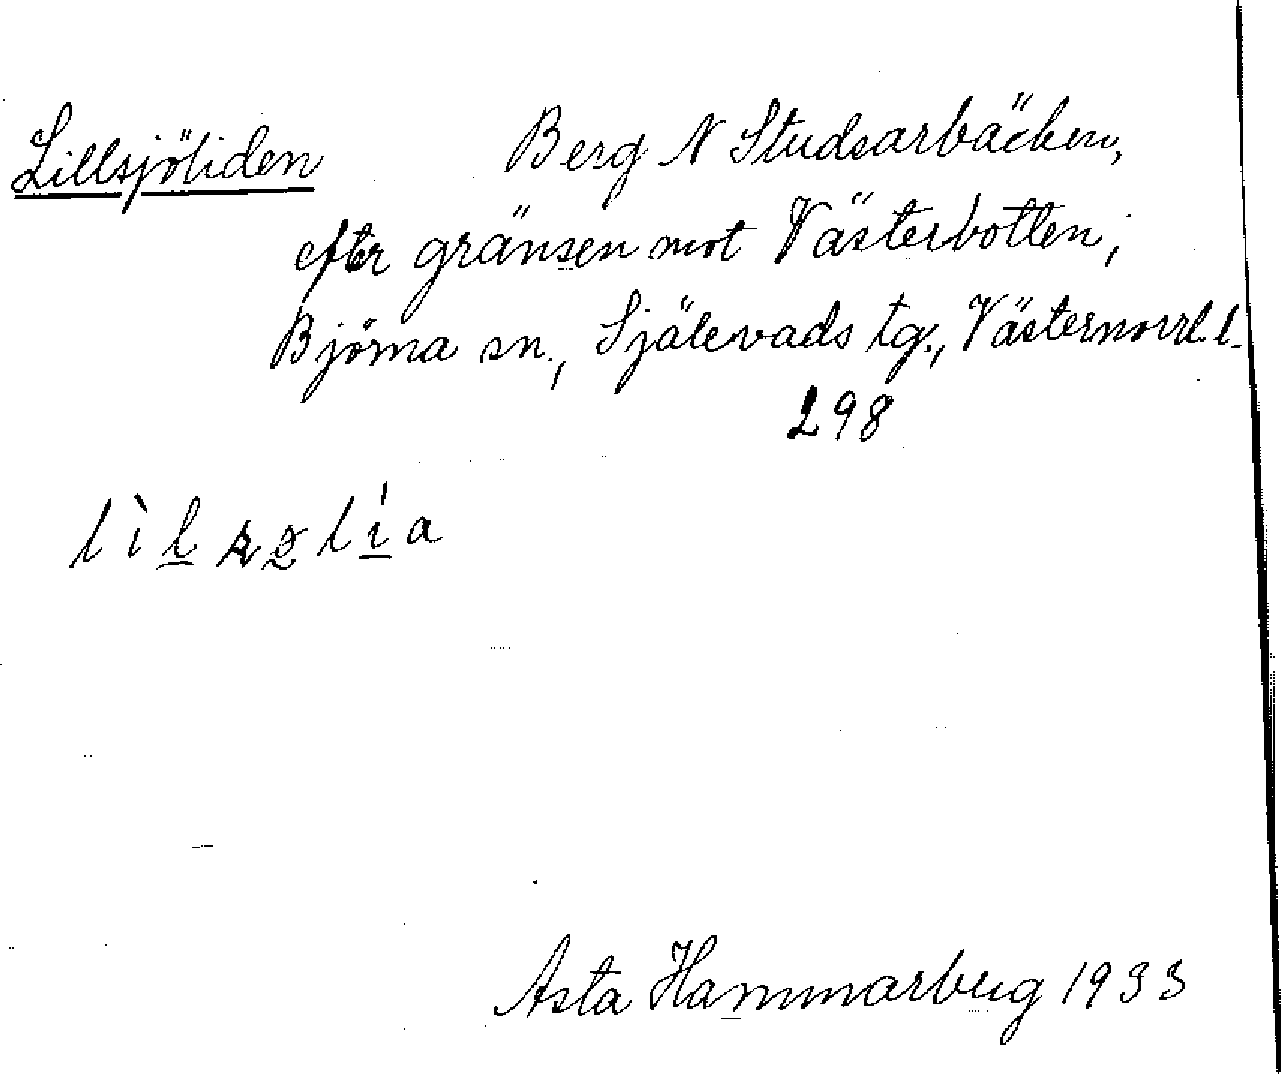 Lillsjöliden Berg N Studsarbäcken,
efter gränsen mot Västerbotten,
Björna sn., Själevads tg., Västernorrl. l.
298
Asta Hammarberg 1933